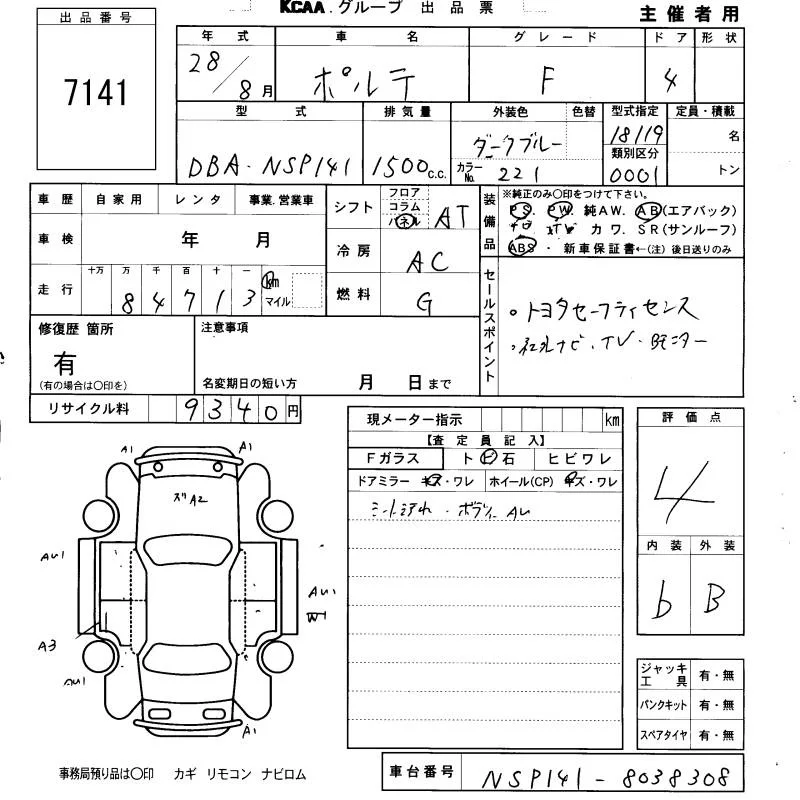 KCAA.グループ 出品票
主催者用
出品番号
7141
年式 車名 グレード ドア 形状
28/8月 ポルテ F 4
型式 排気量 外装色 色替 型式指定 定員・積載
DBA-NSP141 1500c.c. ダークブルー 18119 名
カラーNo. 221 類別区分 0001 トン
車歴 自家用 レンタ 事業.営業車
車検 年 月
走行 十万 万 千 百 十 一
84713 km マイル
シフト フロア コラム パネル AT
冷房 AC
燃料 G
装備品 ※純正のみ〇印をつけて下さい。
PS. PW. 純AW. AB(エアバック)
カワ. SR(サンルーフ)
ABS・新車保証書←(注) 後日送りのみ
セールスポイント
・トヨタセーフティセンス
・社外ナビ・TV・Bモニター
修復歴 箇所
有
(有の場合は〇印を)
注意事項
名変期日の短い方 月 日まで
リサイクル料 9340円
現メーター指示 km
【査定員記入】
Fガラス トビ石 ヒビワレ
ドアミラー キズ・ワレ ホイール(CP) キズ・ワレ
ボディー AU
評価点
4
内装 外装
b B
A1 A1
ズ A2
AU1
AU1
W1
A3
AU1
A1
ジャッキ工具 有・無
パンクキット 有・無
スペアタイヤ 有・無
事務局預り品は〇印 カギ リモコン ナビロム
車台番号 NSP141-8038308